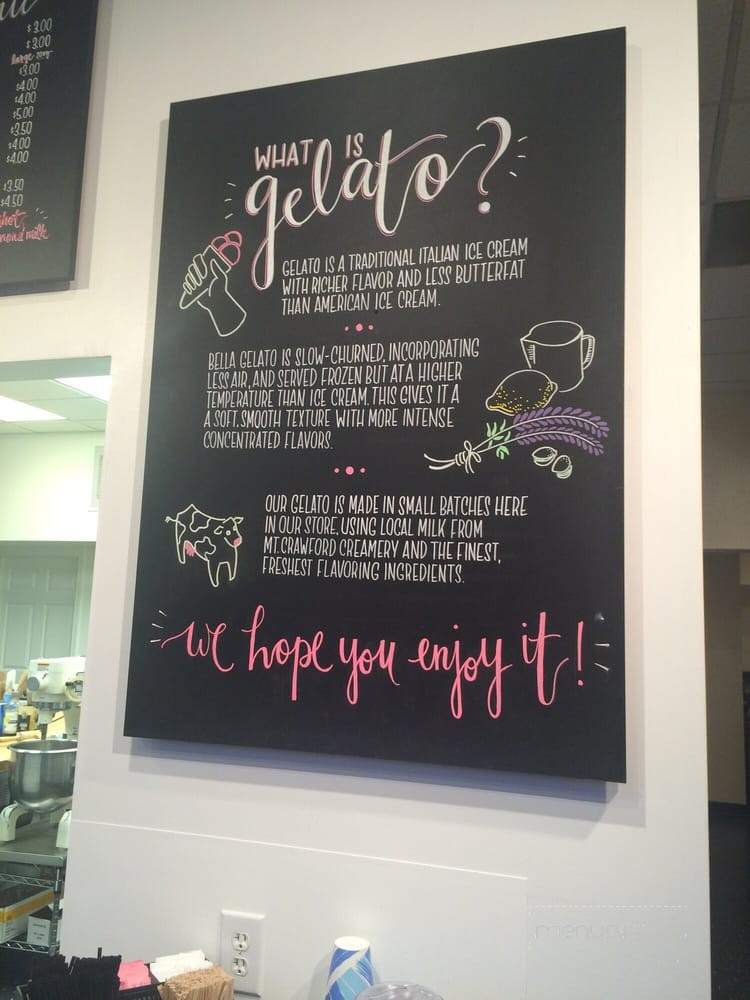 $3.00
$3.00
large
$3.00
$4.00
$4.00
$5.00
$3.50
$4.00
$4.00
$3.50
$4.50
milk
WHAT IS
gelato?
GELATO IS A TRADITIONAL ITALIAN ICE CREAM
WITH RICHER FLAVOR AND LESS BUTTERFAT
THAN AMERICAN ICE CREAM.
BELLA GELATO IS SLOW-CHURNED, INCORPORATING
LESS AIR, AND SERVED FROZEN BUT AT A HIGHER
TEMPERATURE THAN ICE CREAM. THIS GIVES IT A
A SOFT, SMOOTH TEXTURE WITH MORE INTENSE
CONCENTRATED FLAVORS.
OUR GELATO IS MADE IN SMALL BATCHES HERE
IN OUR STORE, USING LOCAL MILK FROM
MT. CRAWFORD CREAMERY AND THE FINEST,
FRESHEST FLAVORING INGREDIENTS.
we hope you enjoy it!